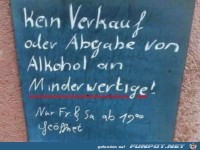 Kein Verkauf
oder Abgabe von
Alkohol an
Minderwertige!
Nur Fr & Sa ab 19⁰⁰
geöffnet
FUNPOT.NET